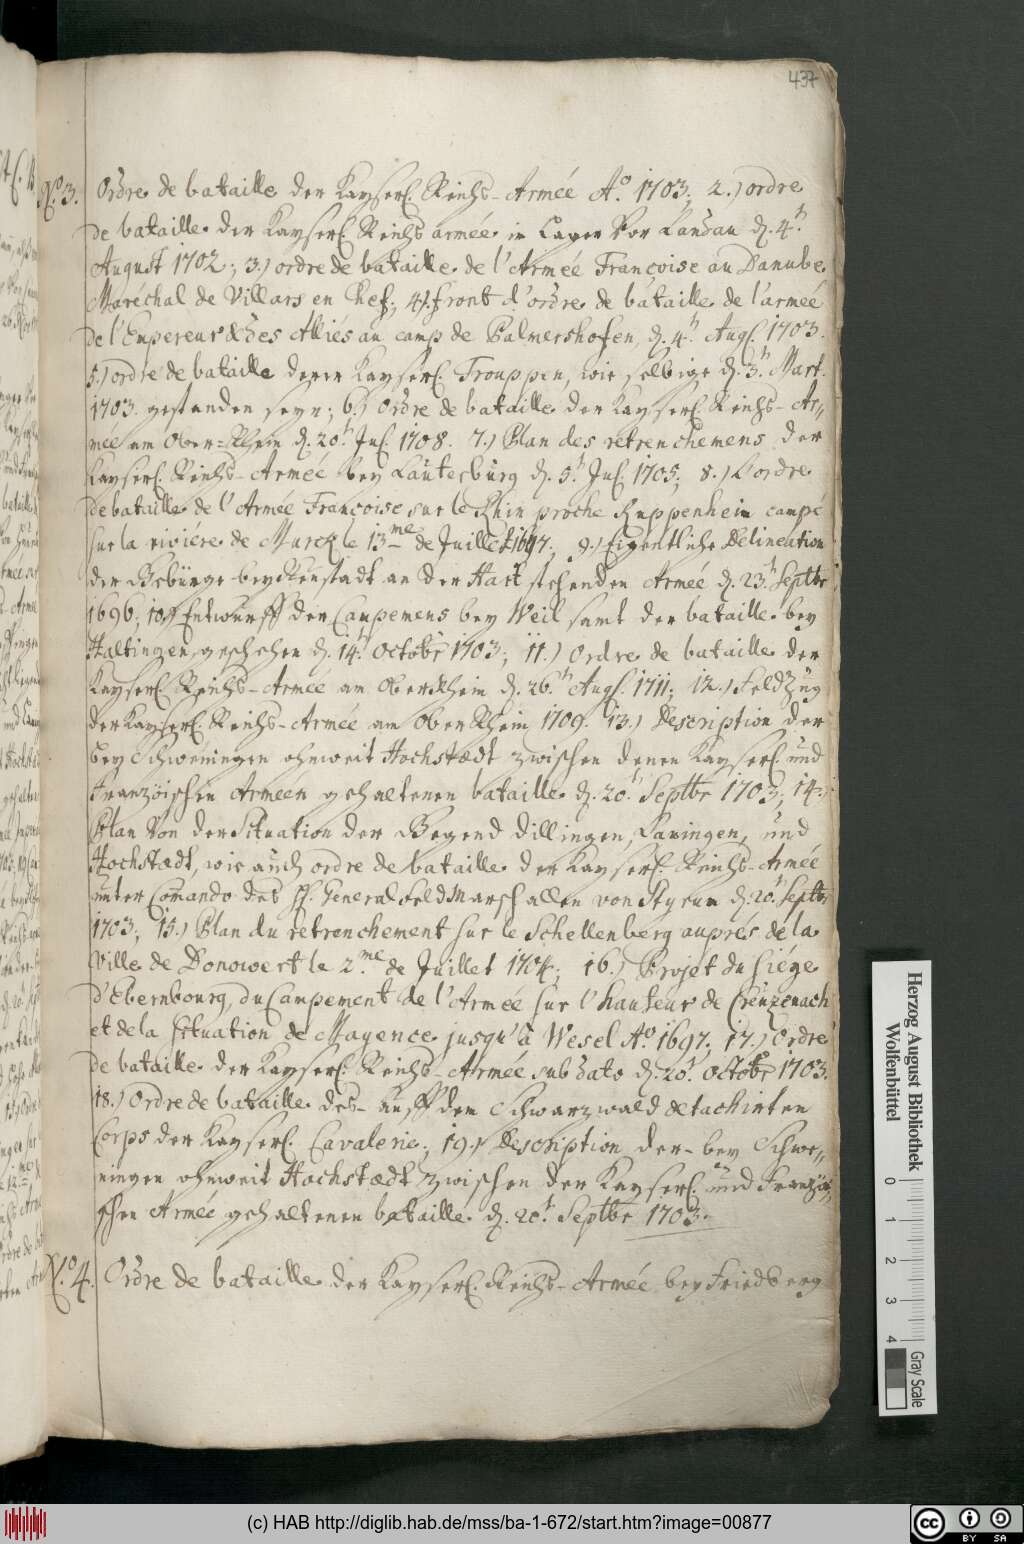 437
No. 3. Ordre de bataille der Kayserl. Reichs-Armée Ao. 1703; 2.) ordre
de bataille der Kayserl. Reichs armée im Lager vor Landau d. 4t.
August 1702; 3.) ordre de bataille de l'Armée Françoise au Danube
Maréchal de Villars en Chef; 4.) front d'ordre de bataille de l'armeé
de l'Empereur & des Alliés au camp de Palmershofen, d. 4t. Aug. 1703.
5.) ordre de bataille derer Kayserl. Trouppen, wie selbige d. 3t. Mart.
1703. gestanden seyn; 6.) Ordre de bataille der Kayserl. Reichs-Ar=
mée am Ober=Rhein d. 20t. Jul. 1708. 7.) Plan des retrenchemens der
Kayserl. Reichs-Armée bey Lauterburg d. 5t. Jul. 1705; 8.) L'ordre
de bataille de l'Armée Françoise sur le Rhin proche Ruppenheim campé
sur la riviére de Murck le 13me de Juillet 1697; 9.) Eigentliche Delineation
der Gebürge bey Neustadt an der Hart stehenden Armée d. 23t. Septbr
1696; 10.) Entwurff der Campemens bey Weil samt der bataille bey
Haltingen, geschehen d. 14t. Octobr 1703; 11.) Ordre de bataille der
Kayserl. Reichs-Armée am Ober Rhein d. 26t. Aug. 1711; 12.) Feldzug
der Kayserl. Reichs-Armée am Ober Rhein 1709. 13.) Description der
bey Schweningen ohnweit Hochstædt zwischen denen Kayserl. und
französischen Arméen gehaltenen bataille d. 20t. Septbr 1703; 14.)
Plan von der Situation der Gegend Dillingen, Lauingen, und
Hochstædt, wie auch ordre de bataille der Kayserl. Reichs-Armée
unter Comando des H. General Feld Marschallen von Styrum d. 20t. Septbr
1703; 15.) Plan du retrenchement sur le Schellenberg auprés de la
Ville de Donowert le 2.me de Juillet 1704; 16.) Projet du siége
d'Ebernbourg, du Campement de l'Armée sur l'hauteur de Creuzenach
et de la situation de Mayence jusqu'à Wesel Ao 1697. 17.) Ordre
de bataille der Kayserl. Reichs-Armée sub dato d. 20t. Octobr 1703.
18.) Ordre de bataille des auff den Schwarzwald detachirten
Corps der Kayserl. Cavalerie; 19.) Description der bey Schwe=
ningen ohnweit Hochstædt zwischen der Kayserl. und Französi=
schen Armée gehaltenen bataille d. 20t. Septbr 1703.
No. 4. Ordre de bataille der Kayserl. Reichs-Armée bey Friedberg
Herzog August Bibliothek
Wolfenbüttel
0 1 2 3 4 Gray Scale
(c) HAB http://diglib.hab.de/mss/ba-1-672/start.htm?image=00877
cc BY SA